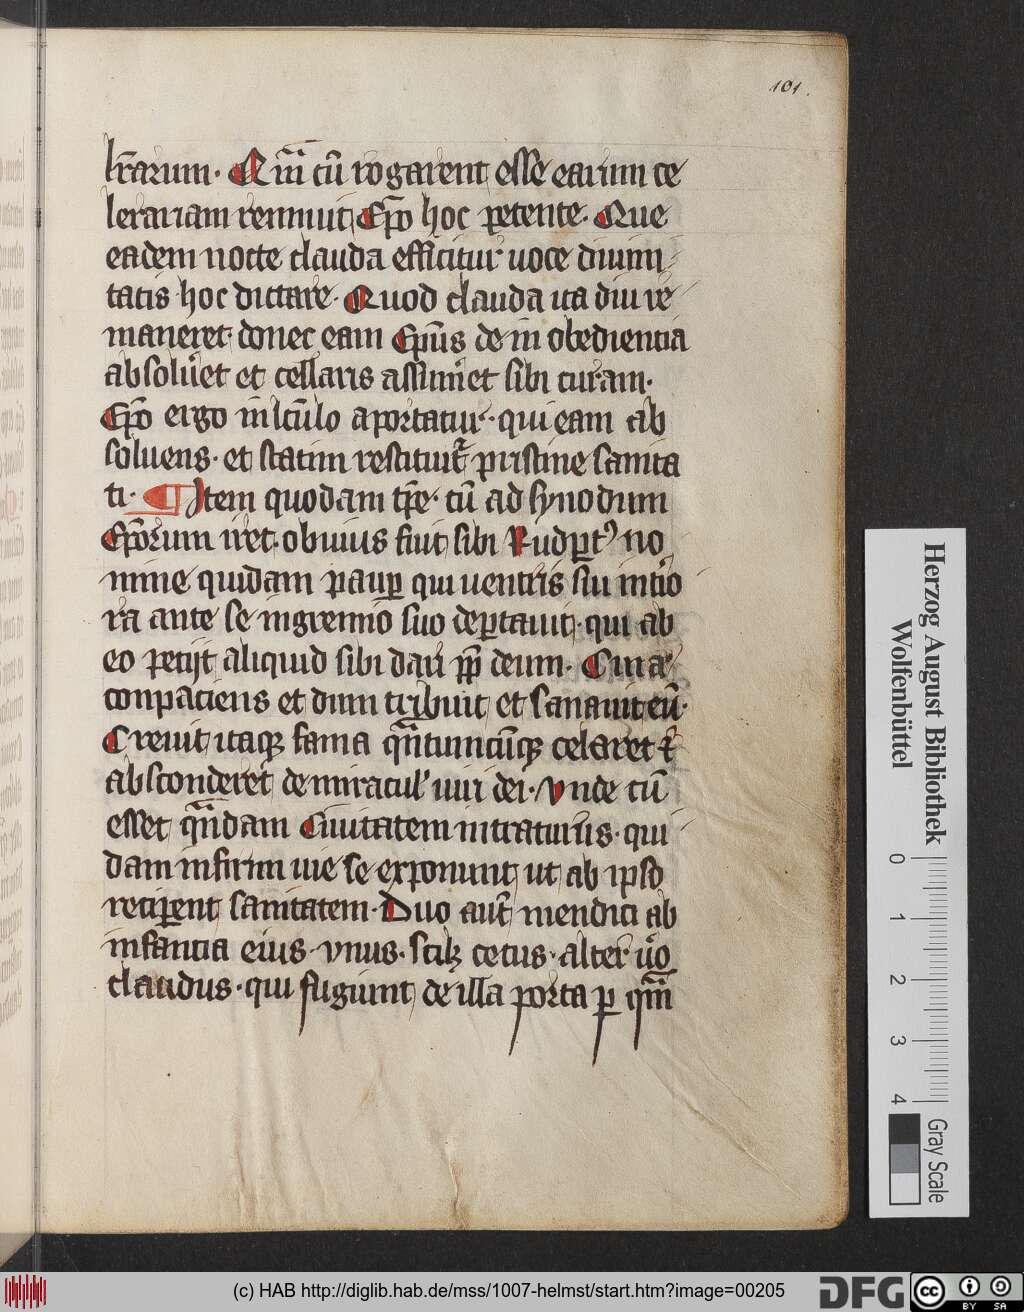 101.
lr̄arum. Qm̄ cū rogarent esse earum ce
lerariam rennuit Ep̄o hoc petente. Que
eadem nocte clauda efficitur uoce diuini
tatis hoc dictare. Quod clauda ita diu re
maneret donec eam Ep̄us de in obedientia
absolu̾et et cellaris assum̾et sibi curam.
Ep̄o ergo in lcūlo aportatur. qui eam ab
soluens. et statim restituit̄ pristine sanita
ti. ¶ Item quodam tp̄e. cū ad synodum
Ep̄orum iret. obuius fuit sibi Rudꝑtꝰ no
mine quidam pauꝑ qui uentris sui int̾io
ra ante se in gremio suo deꝑtauit. qui ab
eo petijt aliquid sibi dari ꝓpt̄ deum. Cui
conpaciens et dum tribuit et sanauit eū.
Creuit itaqꝫ fama qn̄tumcūqꝫ celaret et
absconderet de miracul̾ uiri dei. Vnde cū
esset qn̄dam Ciuitatem intraturus. qui
dam infirmi uie se exponunt ut ab ipso
reciꝑent sanitatem. Duo aut̄ mendici ab
infantia eius. vnus. scilꝫ cecus. alter uͦo
claudus. qui fugiunt de illa porta ꝑ qm̄
Herzog August Bibliothek
Wolfenbüttel
0 1 2 3 4
Gray Scale
(c) HAB http://diglib.hab.de/mss/1007-helmst/start.htm?image=00205
DFG
cc BY SA